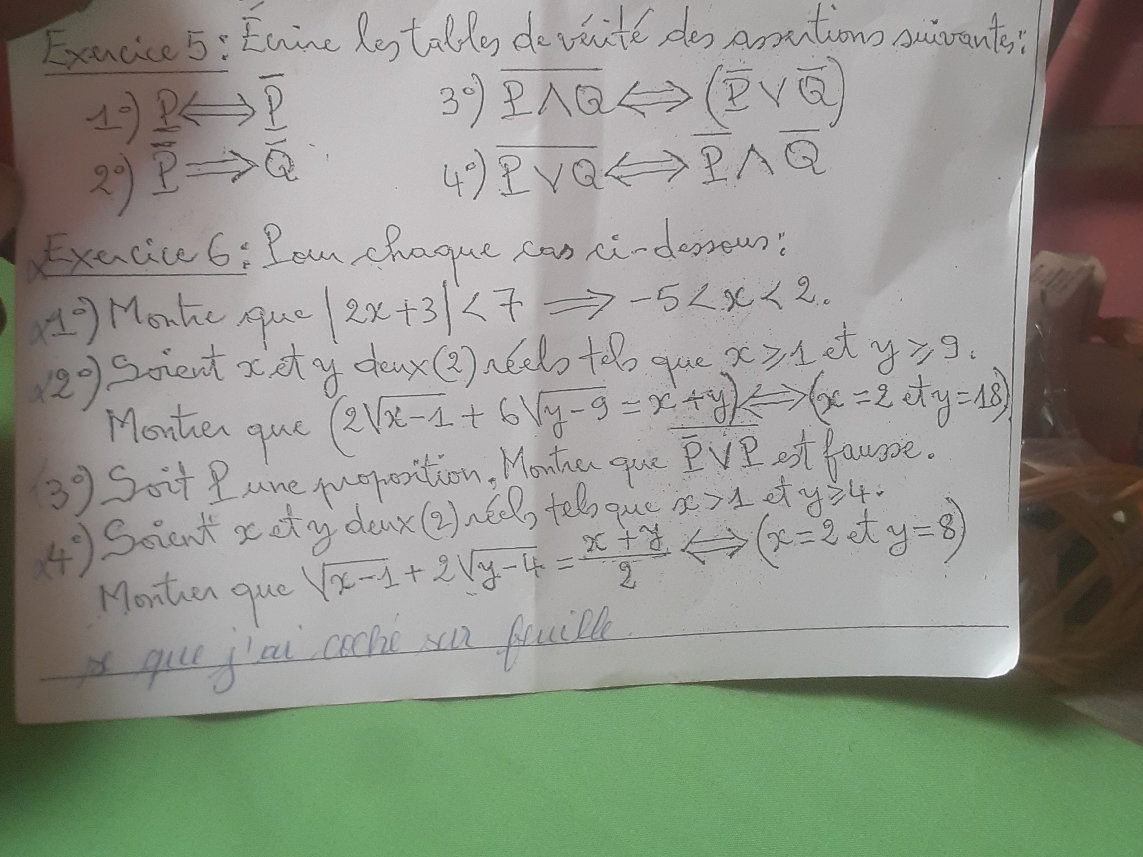 Exercice 5 : Écrire les tables de vérité des assertions suivantes :
1°) P ⟺ P̅
3°) \overline{P ∧ Q} ⟺ (P̅ ∨ Q̅)
2°) P̅ ⟹ Q̅
4°) \overline{P ∨ Q} ⟺ P̅ ∧ Q̅
Exercice 6 : Pour chaque cas ci-dessous :
x1°) Montre que |2x+3| < 7 ⟹ -5 < x < 2.
x2°) Soient x et y deux (2) réels tels que x ⩾ 1 et y ⩾ 9.
Montrer que (2√(x-1) + 6√(y-9) = x+y) ⟺ (x=2 et y=18)
3°) Soit P une proposition. Montrer que \overline{P̅ ∨ P} est fausse.
x4°) Soient x et y deux (2) réels tels que x > 1 et y ⩾ 4.
Montrer que √(x-1) + 2√(y-4) = (x+y)/2 ⟺ (x=2 et y=8)
que j'ai coché sur feuille